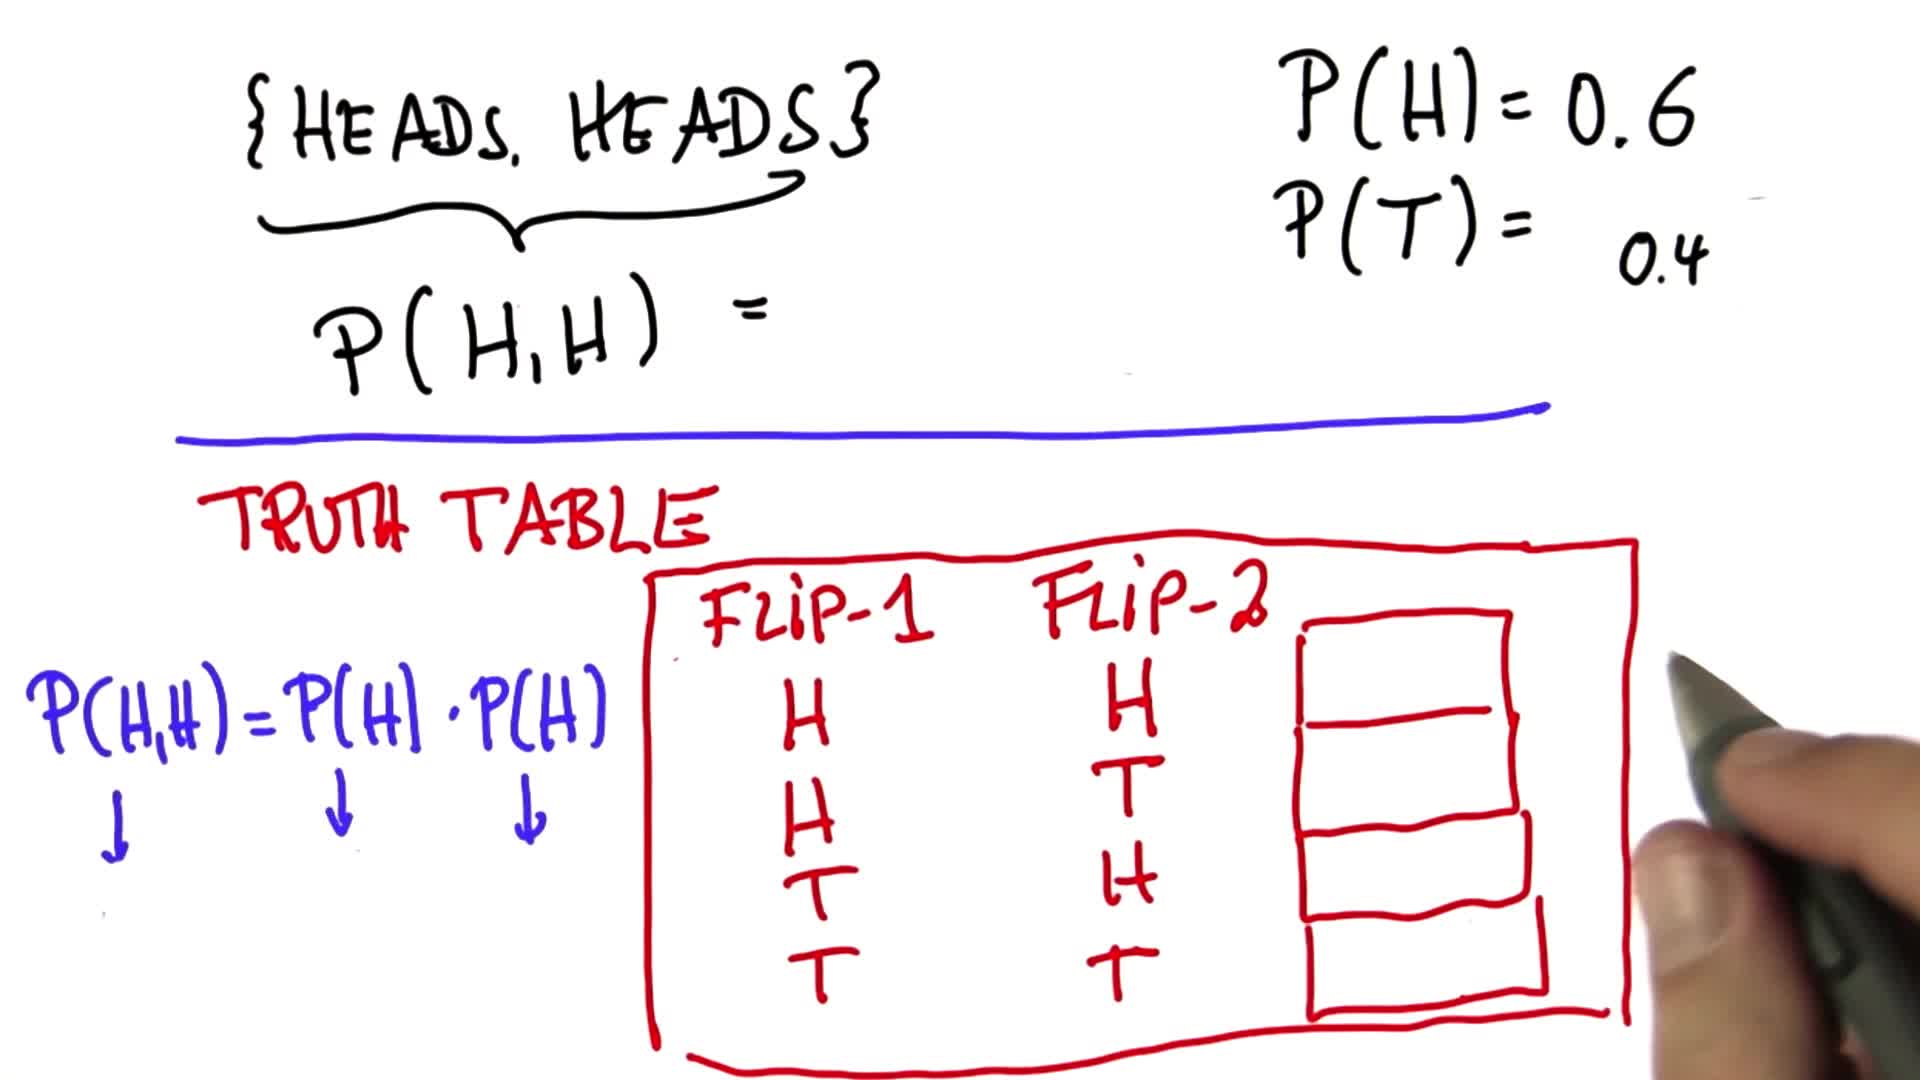 {HEADS, HEADS}
P(H,H) =
P(H) = 0.6
P(T) = 0.4
TRUTH TABLE
P(H,H) = P(H) · P(H)
FLiP-1 FLiP-2
H H
H T
T H
T T